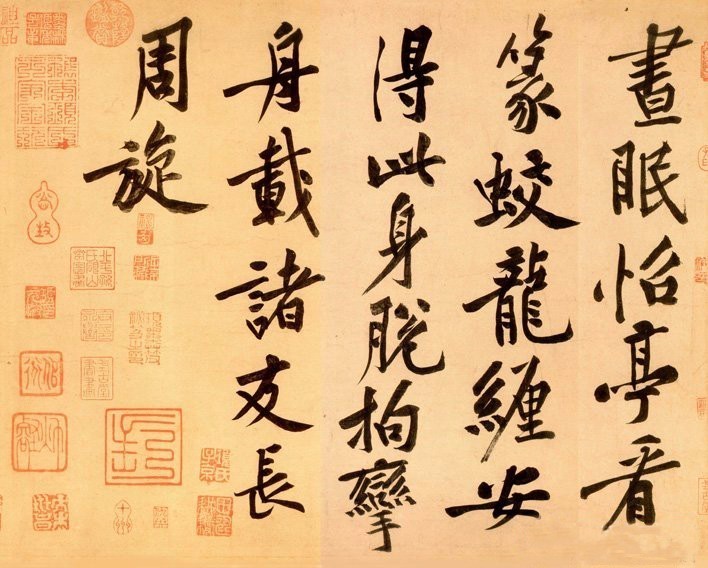 晝眠怡亭看
篆蛟龍纏安
得此身脫拘攣
舟載諸友長
周旋